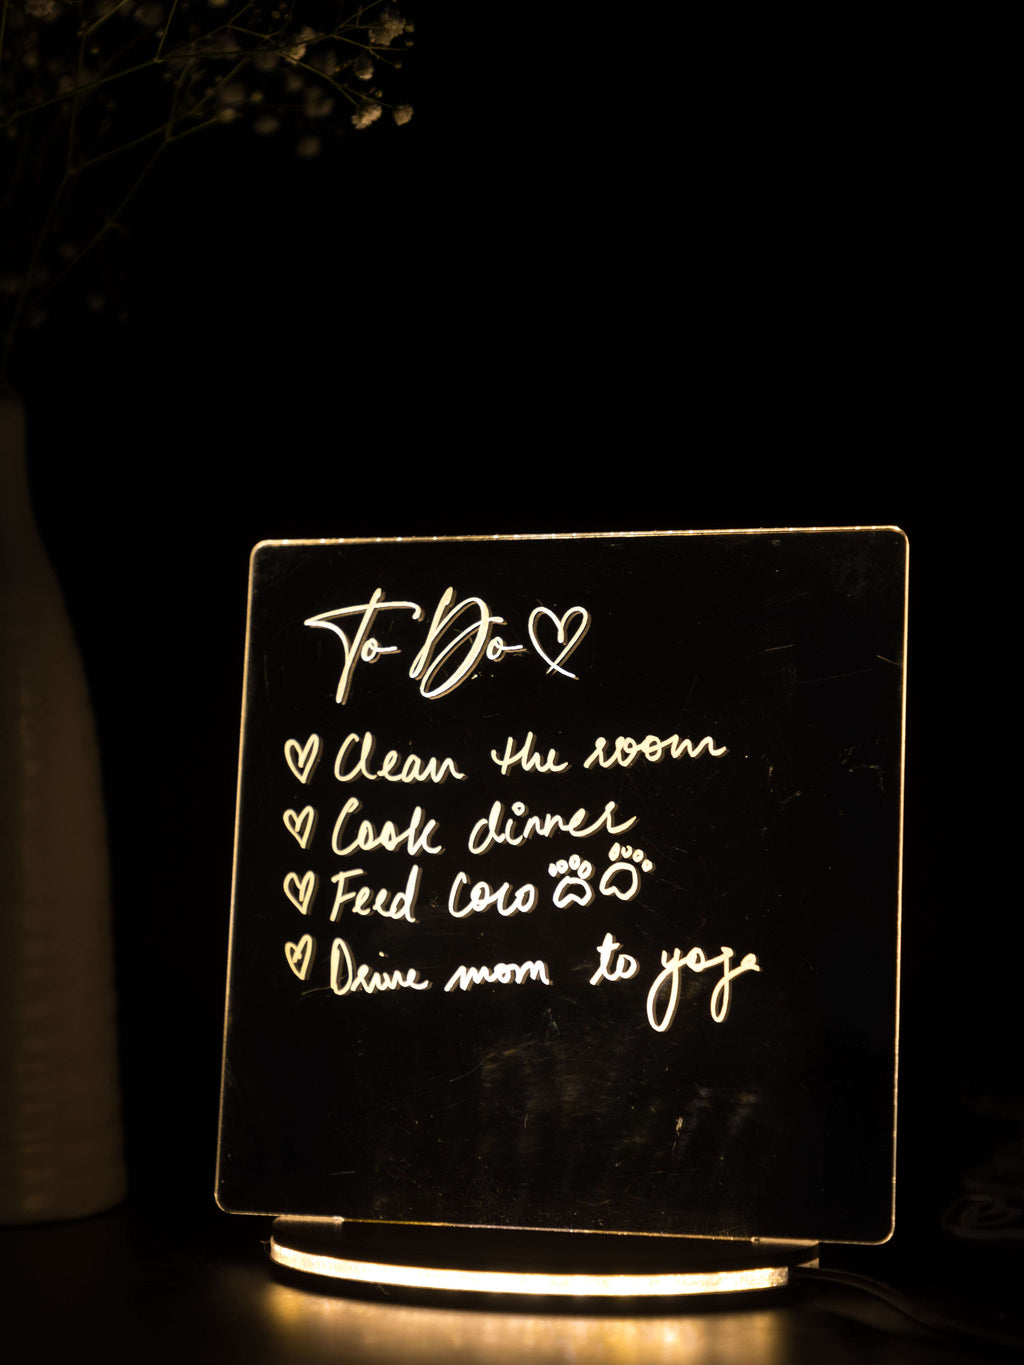 To Do
Clean the room
Cook dinner
Feed Coco
Drive mom to yoga